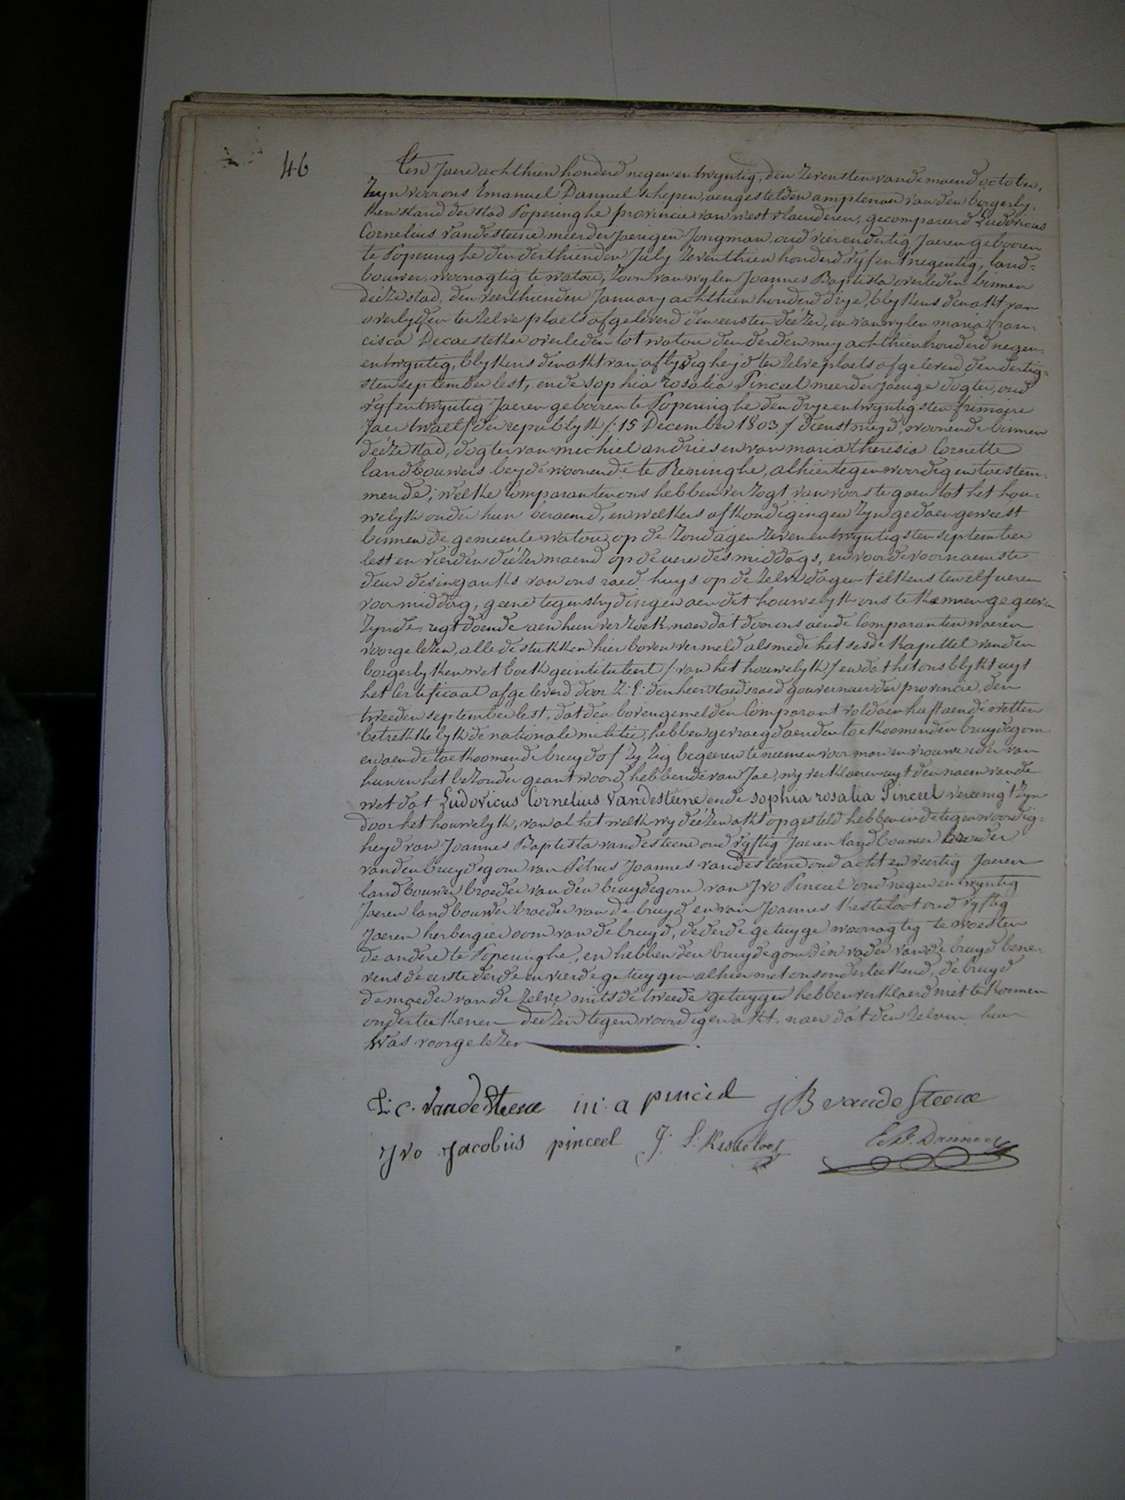 46
Ten Jaere achthien honderd negen en twyntig, den zevensten van de maend october,
Zyn voor ons Emanuel Danneel schepen, aengestelden amptenaer van den borgerly-
ken stand der stad Poperinghe provincie van west vlaenderen, gecompareerd Ludovicus
Cornelius Vandesteene meerderjaerigen Jongman, oud vier en dertig Jaeren gebooren
te Poperinghe den derthienden July zeventhien honderd vyf en t'negentig, land-
bouwer, woonagtig te watou, zoon van wylen Joannes Baptista overleden binnen
deéze stad, den veerthienden January achthien honderd drye, blykens den akt van
overlyden ter zelve plaets afgeleverd den eersten deézer, en van wylen maria Fran-
cisca Decaesteker overleden tot watou den derden mey achthien honderd negen-
en twyntig, blykens den akt van aflyvigheyd ter zelve plaets afgeleverd den dertig-
sten september lest, ende sophia rosalia Pinceel meerderjaerige dogter, oud
vyf en twyntig Jaeren gebooren te Poperinghe den drye en twyntigsten frimaire
Jaer twaelf der republyk /: 15 December 1803 / dienstmeyd, woonende binnen
deéze stad, dogter van michiel andries en van maria theresia Cornette
landbouwers beyde woonende te Reninghe, alhier tegenwoordig en toestem-
mende; welke Comparanten ons hebben verzogt van voorts te gaen tot het hou-
welyk onder hun beraemd, en welkers afkondigingen zyn gedaen geweest
binnen de gemeente watou, op de zondagen zeven en twyntigsten september
lest en vierden deézer maend op de uere des middags, en voor de voornaemste
deur des ingangks van ons raed huys op de zelve dagen t'elkens ten elf ueren
voormiddag, geene tegenstrydingen aen dit houwelyk ons te kennen gegeven
zynde, regt doende aen hun verzoek, naer dat door ons aen de Comparanten waeren
voorgelezen, alle de stukken hier boven vermeld alsmede het sesde kapittel van den
borgerlyken wet boek geintituleert / van het houwelyk / en dat het ons blykt uyt
het certificaat afgeleverd door Z: E: den heer staedsraed gouverneur der provincie, den
tweeden september lest, dat den bovengemelden Comparant voldaen heeft aen de wetten
betrekkelyk de nationale militie, hebben gevraegd aen den toekoomenden bruydegom
en aen de toekoomende bruyd of zy zig begeeren te neemen voor man en vrouw, ieder van
hun en het bezonder geantwoord hebbende van Jae; wy verklaeren uyt den naem van de
wet dat Ludovicus Cornelius Vandesteene ende sophia rosalia Pinceel vereenigt zyn
door het houwelyk, van al het welk wy deézen akt opgesteld hebben in de tegenwoordig-
heyd van Joannes Baptista vandesteene oud vyftig Jaeren landbouwer broeder
van den bruydegom van Petrus Joannes vandesteene oud acht en veertig Jaeren
landbouwer broeder van den bruydegom van Jvo Pinceel oud negen en twyntig
Jaeren landbouwer broeder van de bruyd en van Joannes Kesteloot oud vyftig
Jaeren herbergier oom van de bruyd, de derde getuyge woonagtig te woesten
de andere te Poperinghe, en hebben den bruydegom den vader van de bruyd bene-
vens de eerste derde en vierde getuygen alhier met ons onderteekend, de bruyd
de moeder van de zelve mits de tweede getuyge hebben verklaerd niet te konnen
onderteekenen deézen tegenwoordigen akt. naer dat den zelven hun
was voorgelezen
L: C. vande Steene m: a pinceel J B vande Steene
Jvo Jacobus pinceel J: S: Kesteloot Em. Danneel